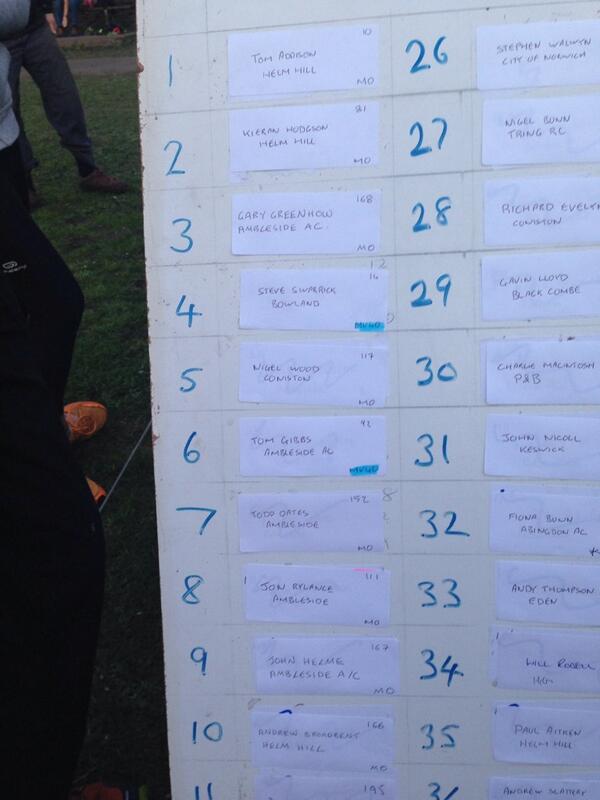 1
10
TOM ADDISON
HELM HILL
MO
2
81
KIERAN HODGSON
HELM HILL
MO
3
168
GARY GREENHOW
AMBLESIDE A.C.
MO
4
16
STEVE SWARBRICK
BOWLAND
MV40
5
117
NIGEL WOOD
CONISTON
MO
6
42
TOM GIBBS
AMBLESIDE AC
MV40
7
152
TODD OATES
AMBLESIDE
MO
8
111
JON RYLANCE
AMBLESIDE
MO
9
167
JOHN HELME
AMBLESIDE A/C
MO
10
166
ANDREW BROADBENT
HELM HILL
MO
11
195
26
STEPHEN WALWYN
CITY OF NORWICH
27
NIGEL BUNN
TRING RC
28
RICHARD EVELYN
CONISTON
29
GAVIN LLOYD
BLACK COMBE
30
CHARLIE MACINTOSH
P&B
31
JOHN NICOLL
KESWICK
32
FIONA BUNN
ABINGDON AC
33
ANDY THOMPSON
EDEN
34
WILL
35
PAUL AITKEN
HELM HILL
36
ANDREW SLATTERY